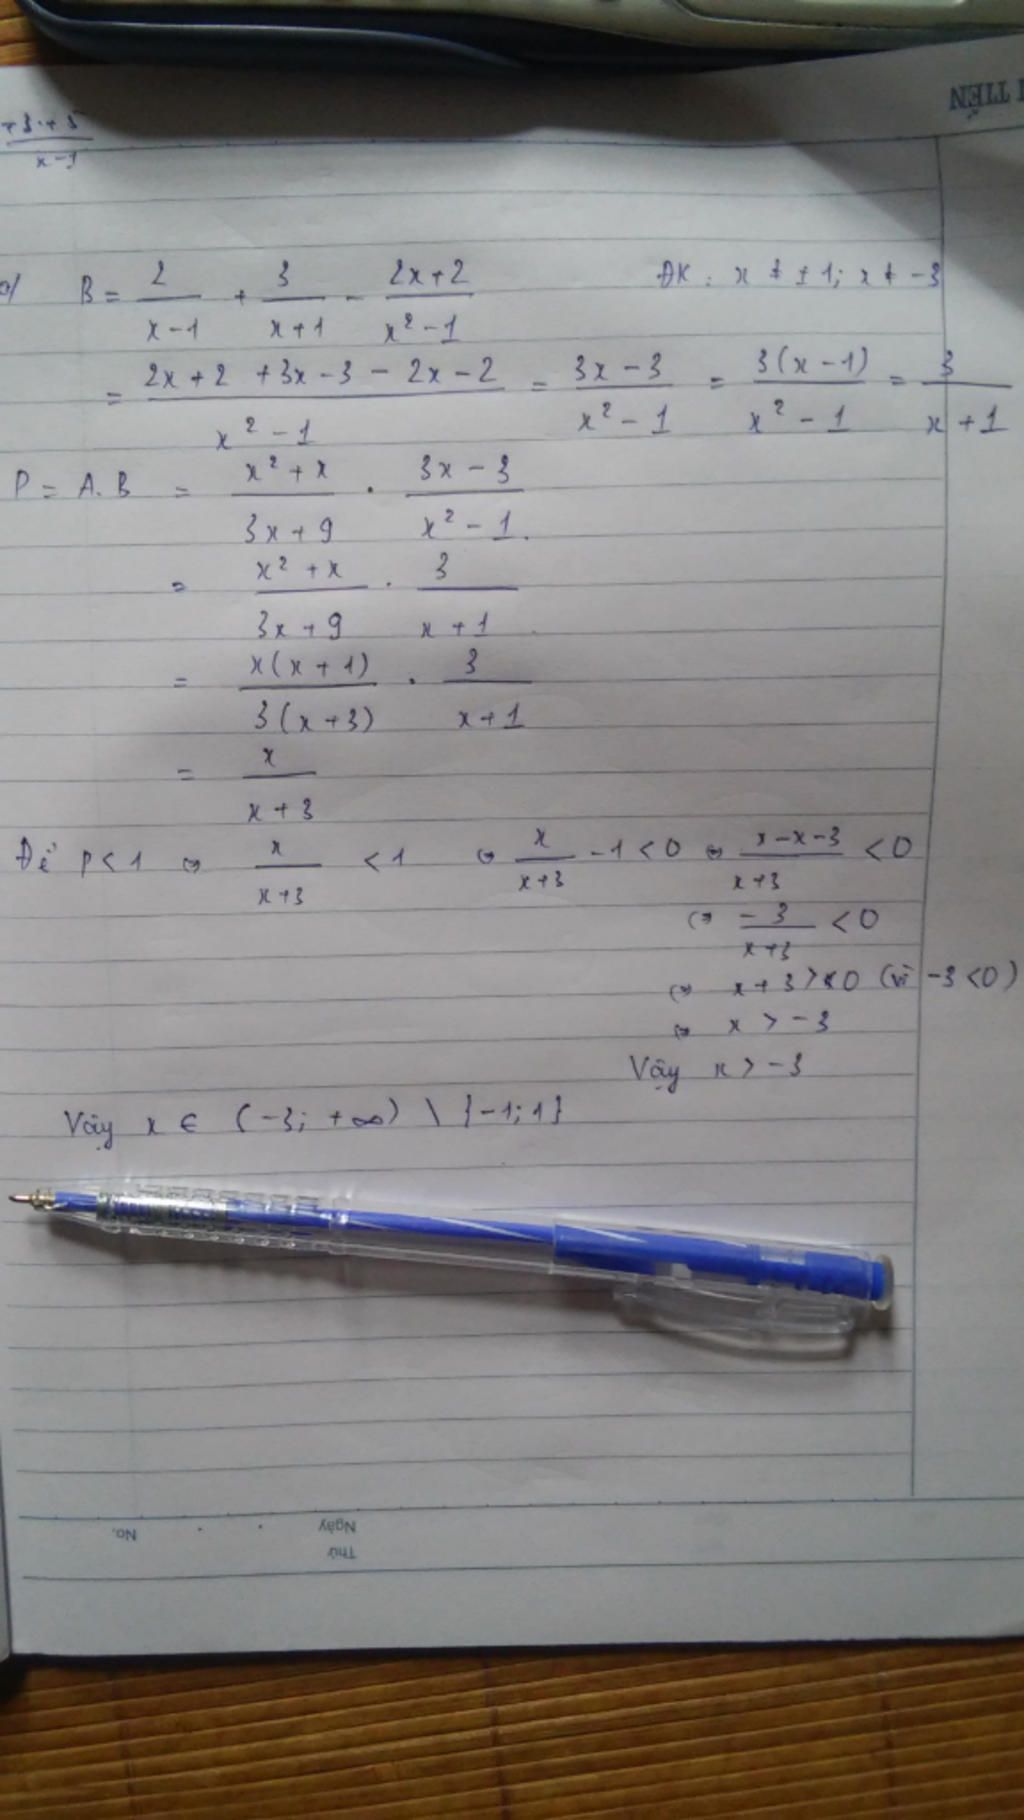 TIẾN
+3.+5
x-1
a/ B = 2/(x-1) + 3/(x+1) - (2x+2)/(x²-1) ĐK: x ≠ ±1; x ≠ -3
= (2x+2+3x-3-2x-2)/(x²-1) = (3x-3)/(x²-1) = 3(x-1)/(x²-1) = 3/(x+1)
P = A.B = (x²+x)/(3x+9) . (3x-3)/(x²-1).
= (x²+x)/(3x+9) . 3/(x+1)
= x(x+1)/3(x+3) . 3/(x+1)
= x/(x+3)
Để P<1 ⇔ x/(x+3) <1 ⇔ x/(x+3) -1<0 ⇔ (x-x-3)/(x+3) <0
⇔ -3/(x+3) <0
⇔ x+3>0 (vì -3<0)
⇔ x > -3
Vậy x > -3
Vậy x ∈ (-3; +∞) \ {-1;1}
No.
Ngày
Thứ